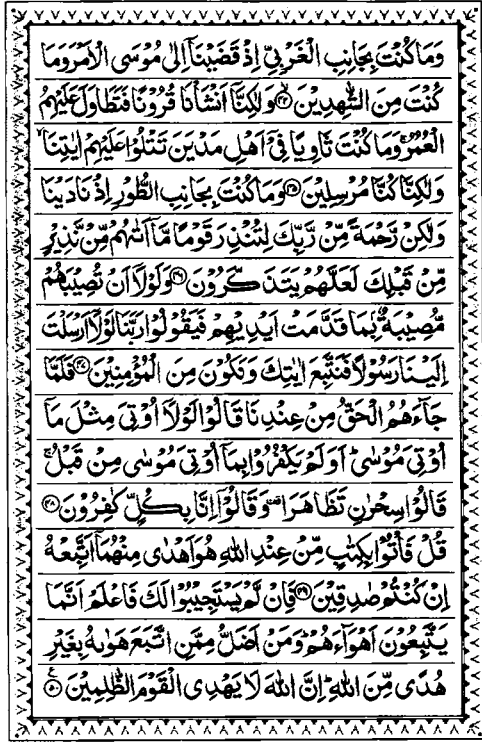 وَمَا كُنْتَ بِجَانِبِ الْغَرْبِيِّ اِذْ قَضَيْنَآ اِلٰى مُوْسَى الْاَمْرَ وَمَا
كُنْتَ مِنَ الشّٰهِدِيْنَ ﴿۴۴﴾ وَلٰكِنَّآ اَنْشَاْنَا قُرُوْنًا فَتَطَاوَلَ عَلَيْهِمُ
الْعُمُرُ ۚ وَمَا كُنْتَ ثَاوِيًا فِيْٓ اَهْلِ مَدْيَنَ تَتْلُوْا عَلَيْهِمْ اٰيٰتِنَا ۙ
وَلٰكِنَّا كُنَّا مُرْسِلِيْنَ ﴿۴۵﴾ وَمَا كُنْتَ بِجَانِبِ الطُّوْرِ اِذْ نَادَيْنَا
وَلٰكِنْ رَّحْمَةً مِّنْ رَّبِّكَ لِتُنْذِرَ قَوْمًا مَّآ اَتٰىهُمْ مِّنْ نَّذِيْرٍ
مِّنْ قَبْلِكَ لَعَلَّهُمْ يَتَذَكَّرُوْنَ ﴿۴۶﴾ وَلَوْلَآ اَنْ تُصِيْبَهُمْ
مُّصِيْبَةٌۢ بِمَا قَدَّمَتْ اَيْدِيْهِمْ فَيَقُوْلُوْا رَبَّنَا لَوْلَآ اَرْسَلْتَ
اِلَيْنَا رَسُوْلًا فَنَتَّبِعَ اٰيٰتِكَ وَنَكُوْنَ مِنَ الْمُؤْمِنِيْنَ ﴿۴۷﴾ فَلَمَّا
جَآءَهُمُ الْحَقُّ مِنْ عِنْدِنَا قَالُوْا لَوْلَآ اُوْتِيَ مِثْلَ مَآ
اُوْتِيَ مُوْسٰى ؕ اَوَلَمْ يَكْفُرُوْا بِمَآ اُوْتِيَ مُوْسٰى مِنْ قَبْلُ ۚ
قَالُوْا سِحْرٰنِ تَظَاهَرَا ۫ وَقَالُوْٓا اِنَّا بِكُلٍّ كٰفِرُوْنَ ﴿۴۸﴾
قُلْ فَاْتُوْا بِكِتٰبٍ مِّنْ عِنْدِ اللّٰهِ هُوَ اَهْدٰى مِنْهُمَآ اَتَّبِعْهُ
اِنْ كُنْتُمْ صٰدِقِيْنَ ﴿۴۹﴾ فَاِنْ لَّمْ يَسْتَجِيْبُوْا لَكَ فَاعْلَمْ اَنَّمَا
يَتَّبِعُوْنَ اَهْوَآءَهُمْ ؕ وَمَنْ اَضَلُّ مِمَّنِ اتَّبَعَ هَوٰىهُ بِغَيْرِ
هُدًى مِّنَ اللّٰهِ ؕ اِنَّ اللّٰهَ لَا يَهْدِى الْقَوْمَ الظّٰلِمِيْنَ ﴿۵۰﴾ ع